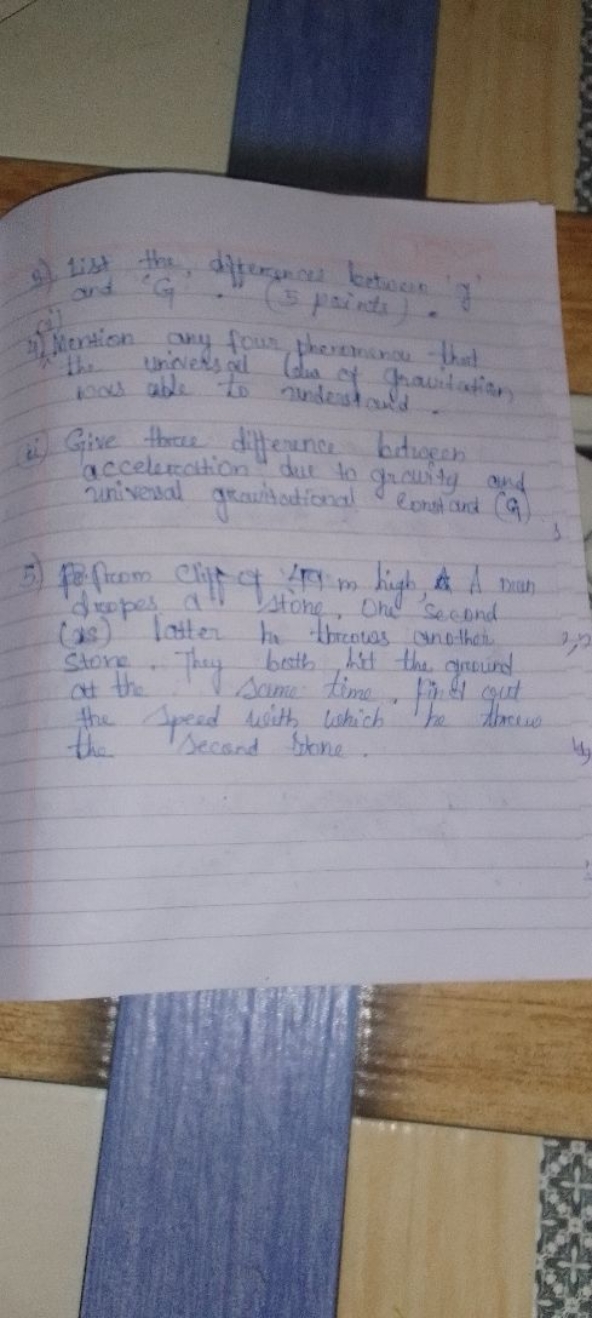 3) List the, differences between 'g'
and 'G'. (5 points).
4) (i) Mention any four phenomena that
the universal law of gravitation
was able to understand.
(ii) Give three difference between
acceleration due to gravity and
universal gravitational constant (G)
5) from cliff of 49 m high, A man
dropes a stone. One second
latter he throws another
stone. They both hit the ground
at the same time. Find out
the speed with which he threw
the second stone.